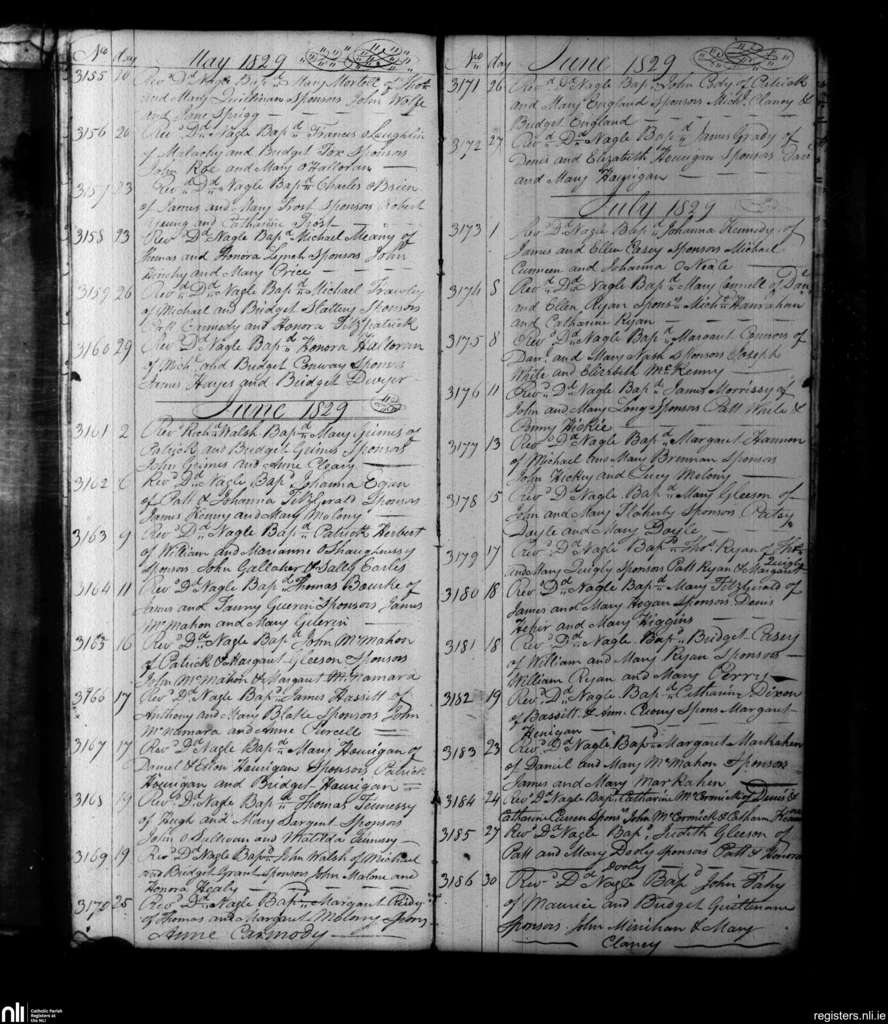 No day May 1829
3155 20 Revd. Dd. Nagle Bapd. Mary of Thos.
and Mary Quillinan Sponsors John Wolfe
and Jane Sprigg
3156 20 Revd. Dd. Nagle Bapd. Frances Loughlin
of Malachy and Budget Fox Sponsors
John Roe and Mary O'Halloran
3157 23 Revd. Dd. Nagle Bapd. Charles O Brien
of James and Mary Frost Sponsors Robert
Young and Catharine Frost
3158 23 Revd. Dd. Nagle Bapd. Michael Meany of
Thomas and Honora Lynch Sponsors John
and Mary Price
3159 26 Revd. Dd. Nagle Bapd. Michael Frawley
of Michael and Budget Slattery Sponsors
Patt Kennedy and Honora Fitzpatrick
3160 29 Revd. Dd. Nagle Bapd. Honora Halloran
of Michl. and Budget Conway Sponsors
James Hayes and Bridget Dwyer
June 1829
3161 2 Revd. Richd. Walsh Bapd. Mary Grimes of
Patrick and Budget Grimes Sponsors
John Grimes and Anne Cleary
3162 6 Revd. Dd. Nagle Bapd. Johanna Egan
of Patt & Johanna Fitzgerald Sponsors
James Kenny and Mary Molony
3163 9 Revd. Dd. Nagle Bapd. Patrick Herbert
of William and Marianne O Shaughnessy
Sponsors John Gallaher & Sally Earles
3164 11 Revd. Dd. Nagle Bapd. Thomas Bourke of
James and Fanny Guerin Sponsors James
McMahon and Mary Guerin
3165 16 Revd. Dd. Nagle Bapd. John McMahon
of Patrick & Margaret Gleeson Sponsors
John McMahon & Margaret McNamara
3166 17 Revd. Dd. Nagle Bapd. James Hassitt of
Anthony and Mary Blake Sponsors John
McNamara and Anne Purcell
3167 17 Revd. Dd. Nagle Bapd. Mary Hourigan of
Daniel & Ellen Hourigan Sponsors Patrick
Hourigan and Bridget Hourigan
3168 19 Revd. Dd. Nagle Bapd. Thomas Fennessy
of Hugh and Mary Sergent Sponsors
John O Sullivan and Matilda
3169 19 Revd. Dd. Nagle Bapd. John Walsh of Michael
and Budget Grant Sponsors John Malone and
Honora Healy
3170 25 Revd. Dd. Nagle Bapd. Margaret Reidy
of Thomas and Margaret Molony Spons
Anne Carmody
No day June 1829
3171 26 Revd. Dd. Nagle Bapd. John Cody of Patrick
and Mary England Sponsors Michl. Clancy &
Budget England
3172 27 Revd. Dd. Nagle Bapd. James Grady of
Denis and Elizabeth Hourigan Sponsors Danl
and Mary Hourigan
July 1829
3173 1 Revd. Dd. Nagle Bapd. Johanna Kennedy of
James and Ellen Casey Sponsors Michael
Curneen and Johanna O Neale
3174 5 Revd. Dd. Nagle Bapd. Mary Connell of Danl.
and Ellen Ryan Sponsrs Michl. Hanrahan
and Catharine Ryan
3175 8 Revd. Dd. Nagle Bapd. Margaret Connors of
Danl. and Mary Nash Sponsors Joseph
White and Elizabeth McKenny
3176 11 Revd. Dd. Nagle Bapd. James Morrissy of
John and Mary Long Sponsors Patt White &
Penny Hickie
3177 13 Revd. Dd. Nagle Bapd. Margaret Hannon
of Michael and Mary Brennan Sponsors
John Hickey and Lucy Molony
3178 15 Revd. Dd. Nagle Bapd. Mary Gleeson of
John and Mary Flaherty Sponsors Patsy
Doyle and Mary Doyle
3179 17 Revd. Dd. Nagle Bapd. Thos. Ryan of Thos.
and Mary Quigly Sponsors Patt Ryan & Margaret
Quigly
3180 18 Revd. Dd. Nagle Bapd. Mary Fitzgerald of
James and Mary Hogan Sponsors Denis
Hehir and Mary Higgins
3181 18 Revd. Dd. Nagle Bapd. Budget Casey
of William and Mary Ryan Sponsors
William Ryan and Mary Perry
3182 19 Revd. Dd. Nagle Bapd. Catharine Dixon
of Bassitt & Ann Spons Margaret
Henigan
3183 23 Revd. Dd. Nagle Bapd. Margaret Markahen
of Daniel and Mary McMahon Sponsors
James and Mary Markahen
3184 24 Revd. Dd. Nagle Bapd. Catharine McCormick of Denis &
Catharine Spons John McCormick & Catharn
3185 27 Revd. Dd. Nagle Bapd. Judith Gleeson of
Patt and Mary Dooly Sponsors Patt & Honora
Dooly
3186 30 Revd. Dd. Nagle Bapd. John Fahy
of Maurice and Bridget Quillinane
Sponsors John Minihan & Mary
Clancy
nli Catholic Parish
Registers at
the NLI
registers.nli.ie